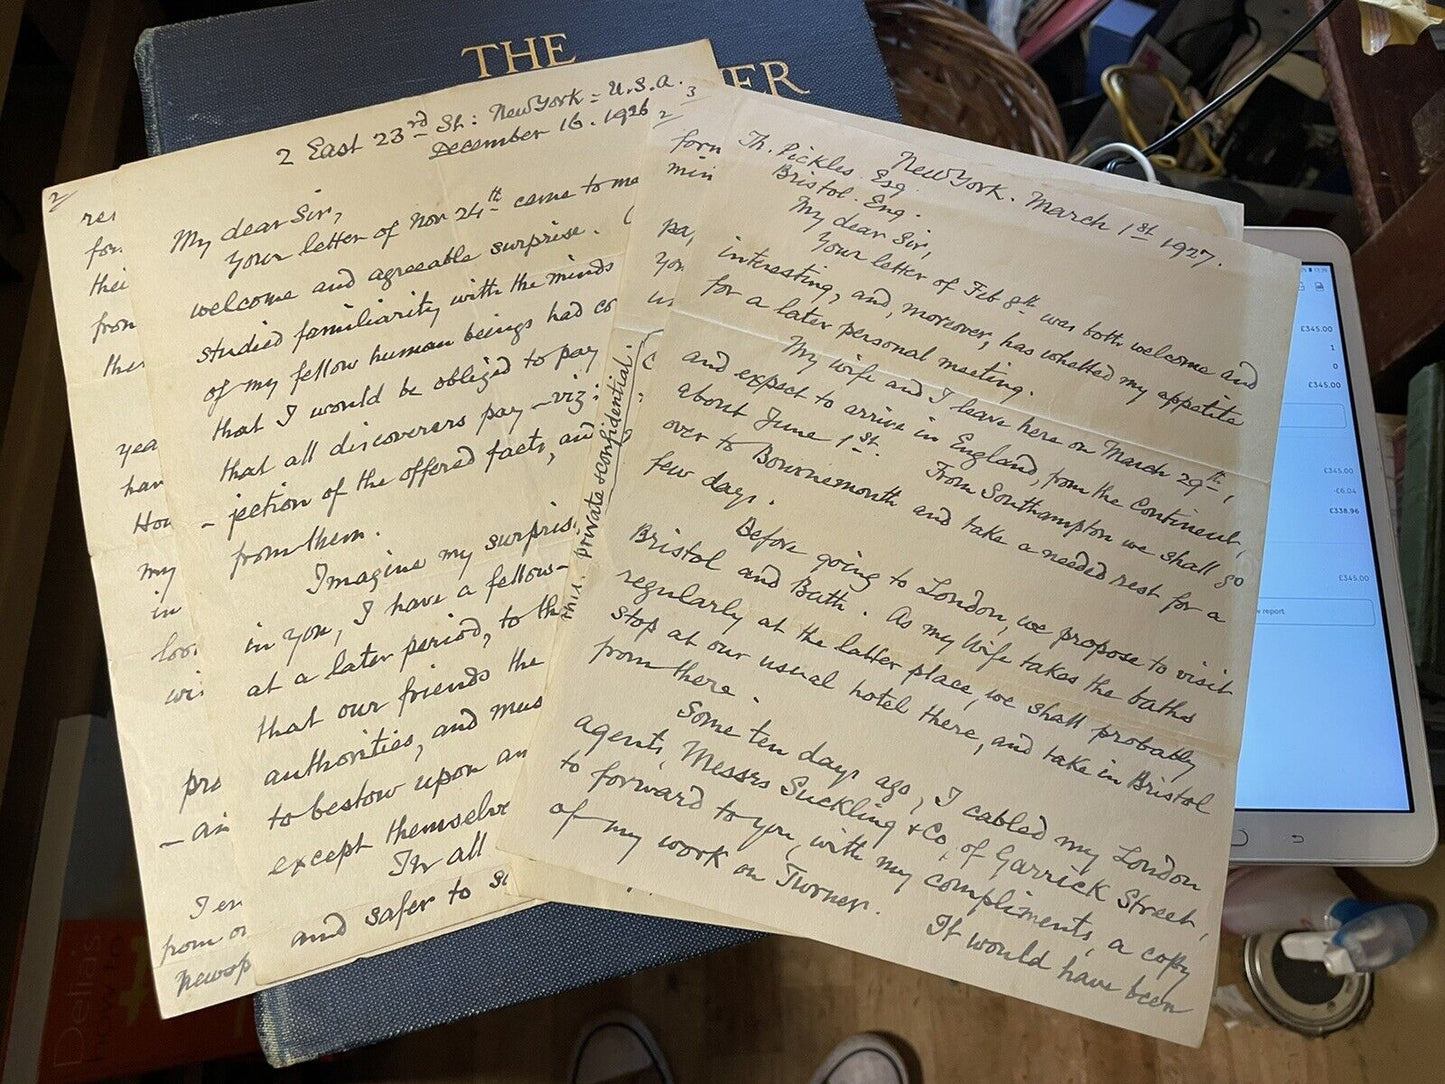 THE
ER
2 East 23rd St: New York = U.S.A.
December 16. 1926
My dear Sir,
Your letter of Nov 24th came to me
welcome and agreeable surprise.
studied familiarity with the minds
of my fellow human beings had co
that I would be obliged to pay
that all discoverers pay - viz:
- jection of the offered facts, and
from them.
Imagine my surpris
in you, I have a fellow-
at a later period, to th
that our friends the
authorities, and mus
to bestow upon an
except themselve
In all
and safer to s
2/
res
for
thei
from
the
yea
han
Hou
my
in
loo
wi
pro
- an
I en
from or
Newsp
3
2/
form
min
pa
you
us
this. private & confidential.
New York. March 1st 1927.
Th. Pickles. Esq.
Bristol. Eng.
My dear Sir,
Your letter of Feb 8th was both welcome and
interesting, and, moreover, has whetted my appetite
for a later personal meeting.
My wife and I leave here on March 29th,
and expect to arrive in England, from the Continent,
about June 1st. From Southampton we shall go
over to Bournemouth and take a needed rest for a
few days.
Before going to London, we propose to visit
Bristol and Bath. As my Wife takes the baths
regularly at the latter place, we shall probably
stop at our usual hotel there, and take in Bristol
from there.
Some ten days ago, I cabled my London
agents, Messrs Suckling & Co, of Garrick Street,
to forward to you, with my compliments, a copy
of my work on Turner.
It would have been
£345.00
1
0
£345.00
£345.00
-£6.04
£338.96
£345.00
report
Delia's
how to